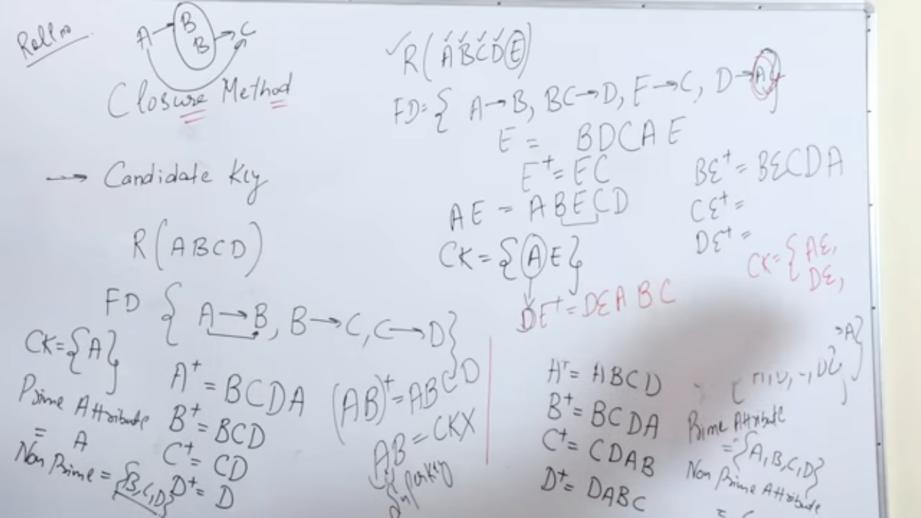 Roll no
A → B
B → C
Closure Method
→ Candidate Key
R(ABCD)
FD { A→B, B→C, C→D}
CK={A}
Prime Attribute
= A
Non Prime = {B,C,D}
A+ = BCDA
B+ = BCD
C+ = CD
D+ = D
(AB)+ = ABCD
AB = CKX
Super key
✓R(ABCDE)
FD= { A→B, BC→D, E→C, D→A}
E = BDCAE
E+ = EC
AE = ABECD
CK = {AE}
DE+ = DEABC
BE+ = BECDA
CE+ =
DE+ =
CK= { AE,
DE,
A+ = ABCD
B+ = BCDA
C+ = CDAB
D+ = DABC
→A}
Prime Attribute
= {A,B,C,D}
Non Prime Attribute